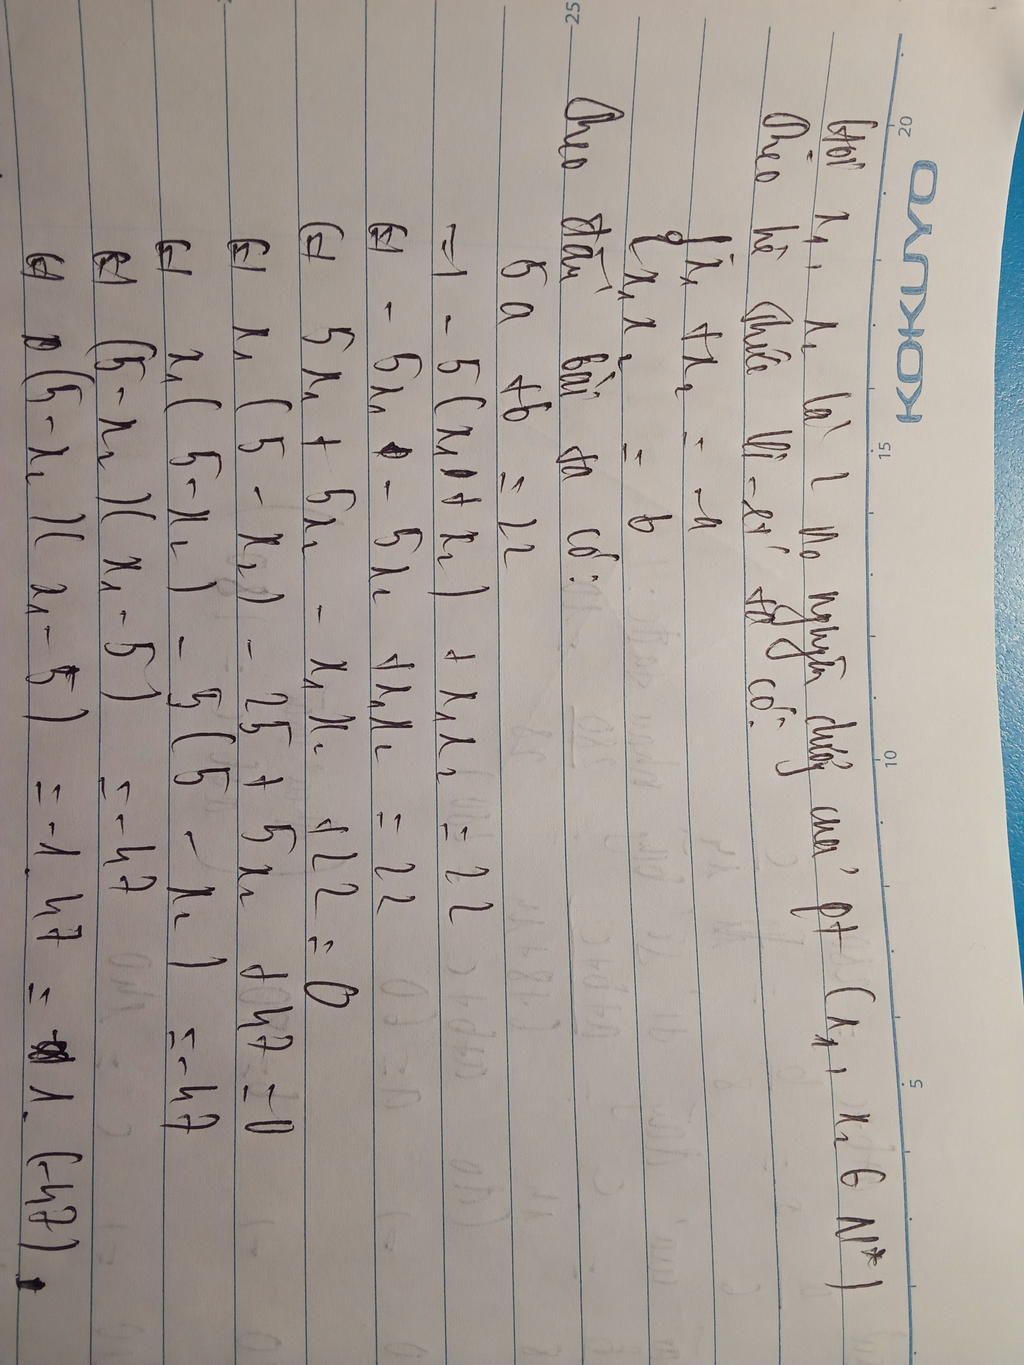 KOKUYO
20 15 10 5
25
Gọi x₁, x₂ là 2 no nguyên dương của pt (x₁, x₂ ∈ N*)
Theo hệ thức Vi-ét ta có:
{ x₁ + x₂ = -a
{ x₁x₂ = b
Theo đầu bài ta có:
5a + b = 22
=> - 5(x₁ + x₂) + x₁x₂ = 22
<=> - 5x₁ - 5x₂ + x₁x₂ = 22
<=> 5x₁ + 5x₂ - x₁x₂ + 22 = 0
<=> x₁(5 - x₂) - 25 + 5x₂ + 47 = 0
<=> x₁(5 - x₂) - 5(5 - x₂) = -47
<=> (5 - x₂)(x₁ - 5) = -47
<=> (5 - x₂)(x₁ - 5) = -1.47 = 1.(-47).